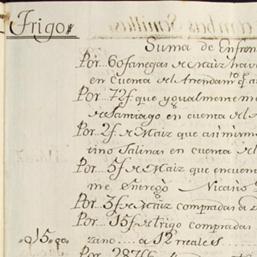 Trigo
Suma de Enfren
Por 60 fanegas de Maiz hav
en cuenta de el Arrendam.to q.e
Por 72 f. que ygualmente me
de Santiago en cuenta de el A
Por 2 f. de Maiz que asi mismo
tino Salinas en cuenta de el
Por 5 f. de Maiz que en cuen
me Entregó Nicano
Por 5 f. de Maiz compradas a
Por 15 f. de trigo compradas
zano a 12 reales